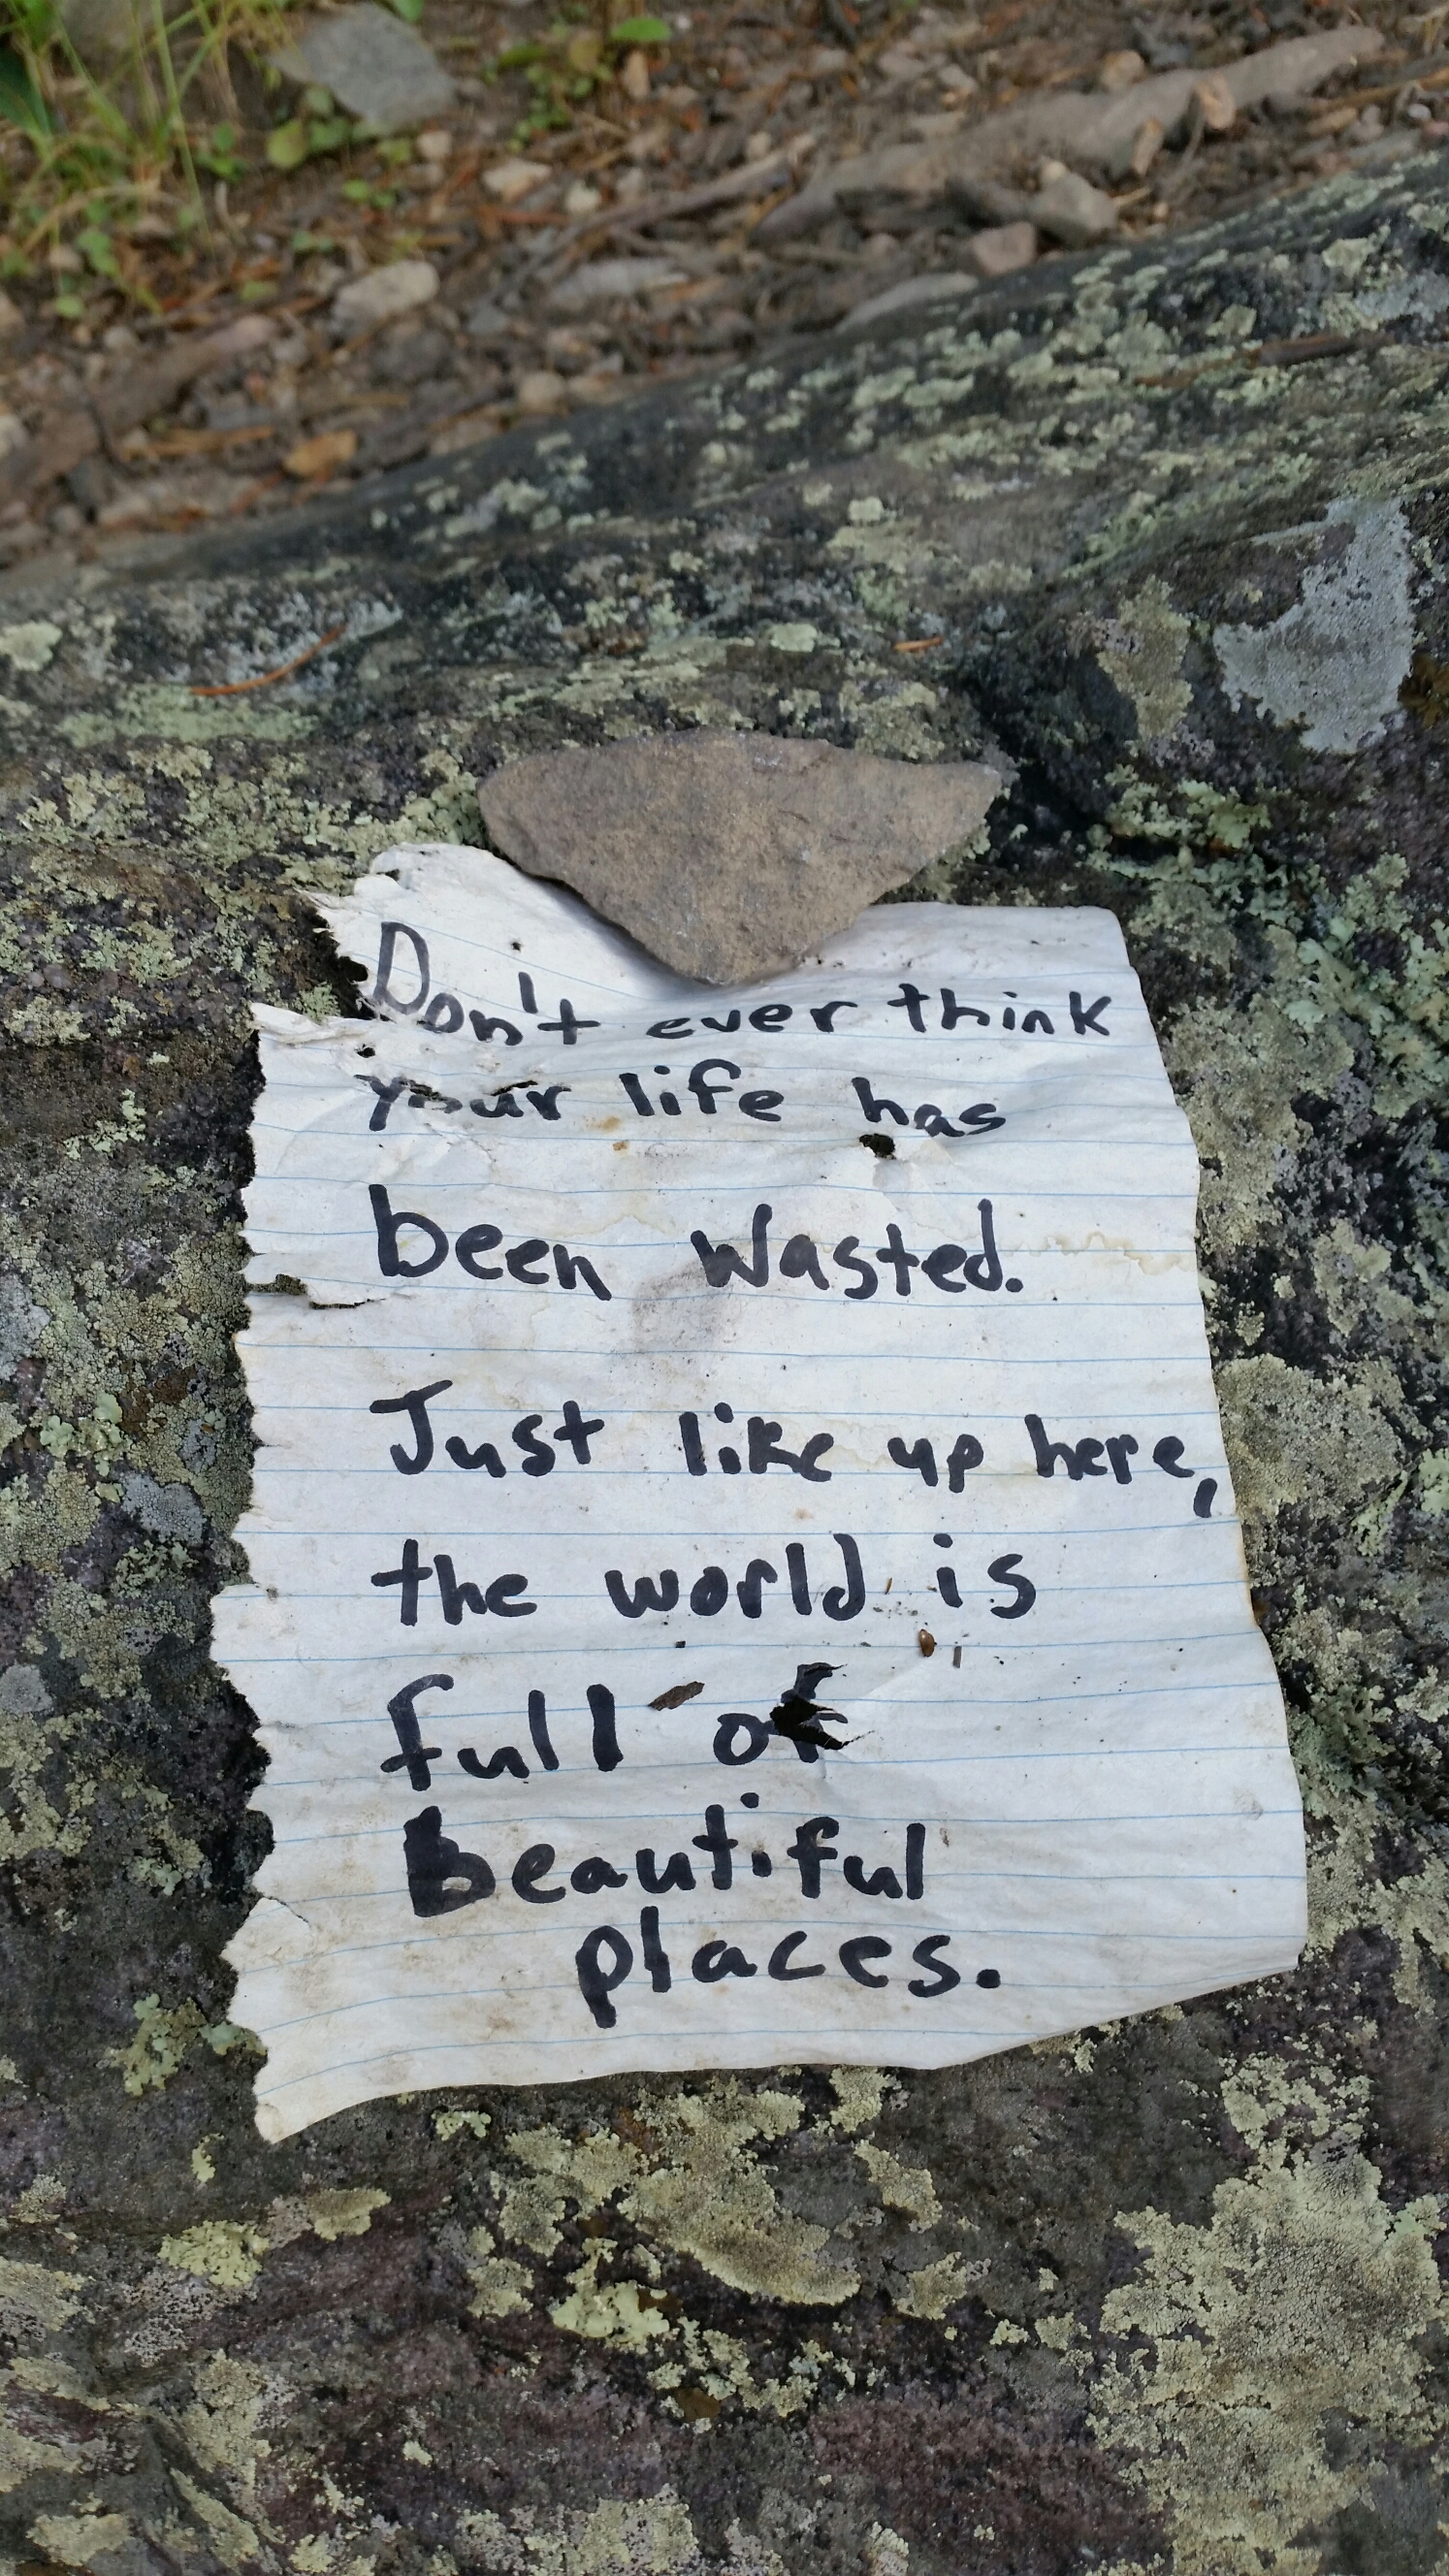 Don't ever think
your life has
been wasted.
Just like up here,
the world is
full of
beautiful
places.